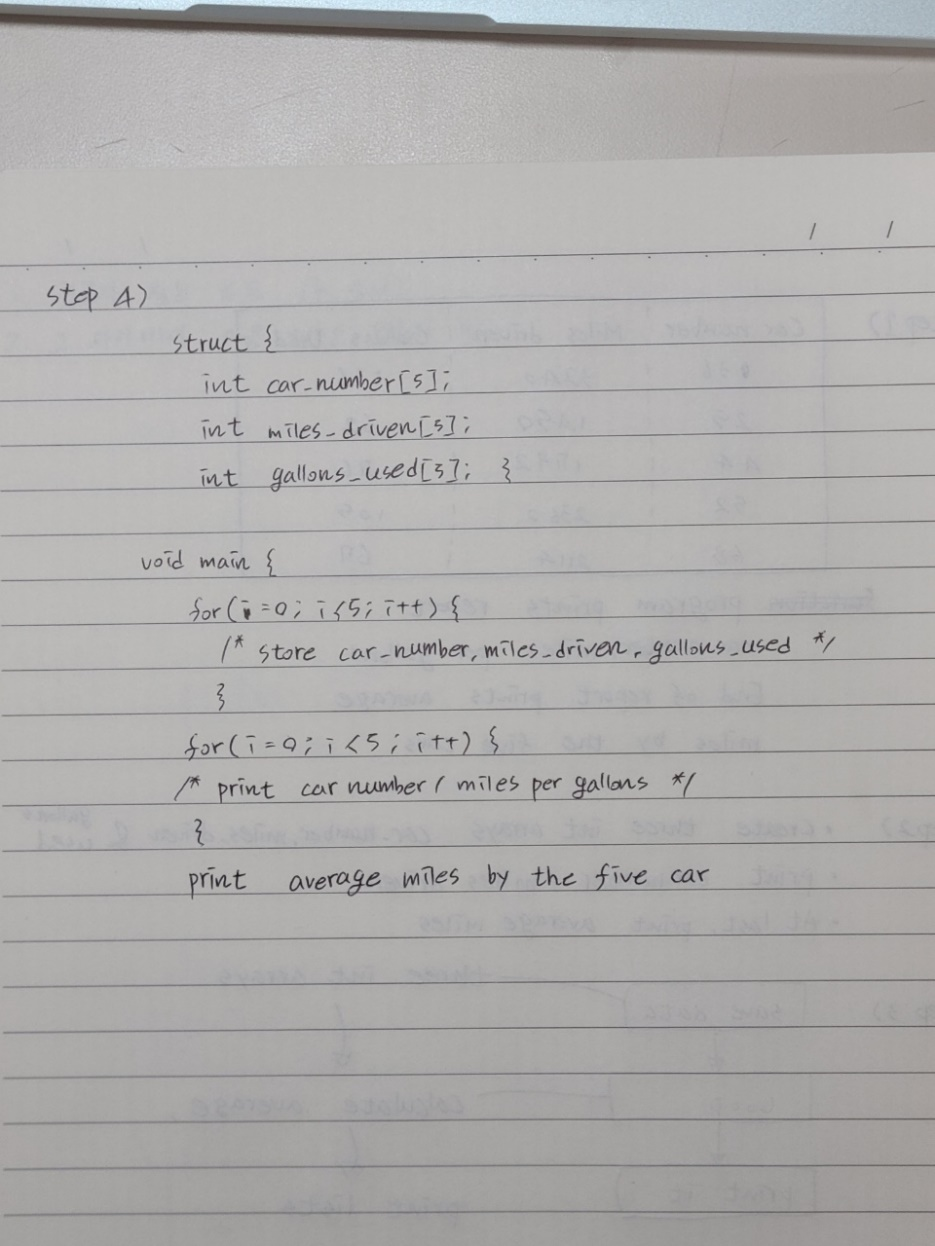 step 4)
struct {
int car_number[5];
int miles_driven[5];
int gallons_used[5]; }
void main {
for(i=0; i<5; i++) {
/* store car_number, miles_driven, gallons_used */
}
for(i=0; i<5; i++) {
/* print car number / miles per gallons */
}
print average miles by the five car